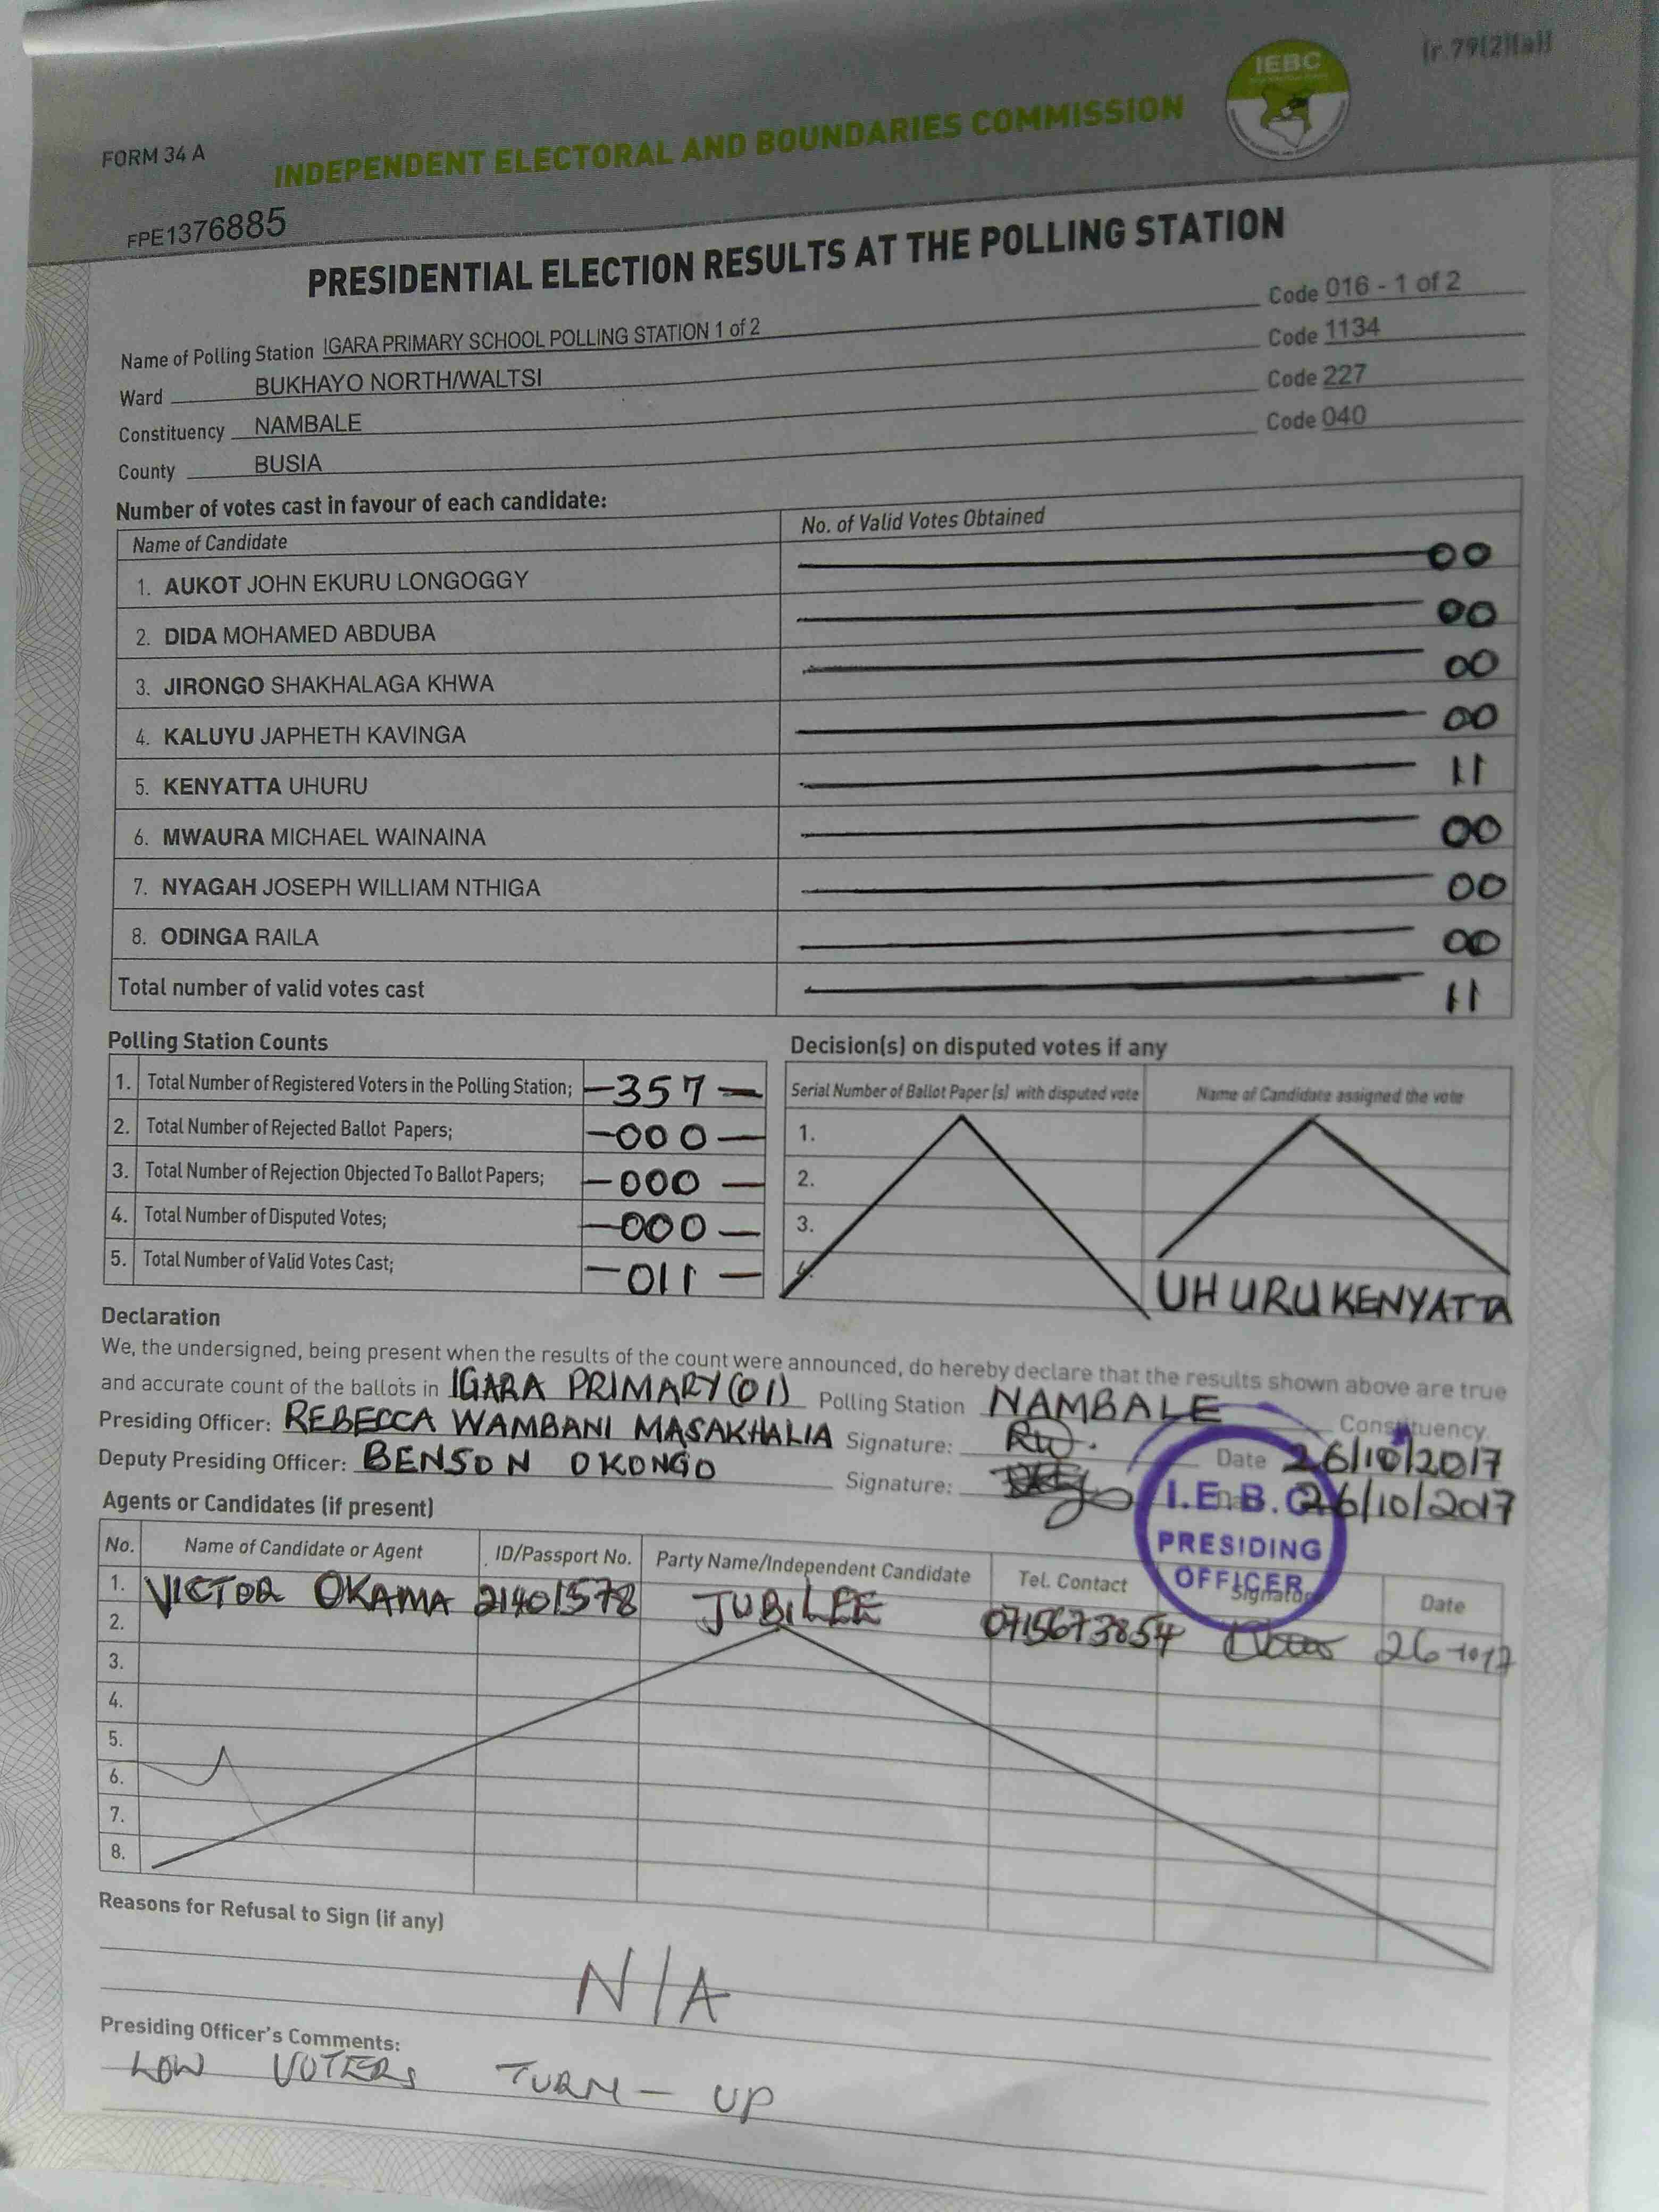 [r.79(2)(a)]
IEBC
FORM 34 A
INDEPENDENT ELECTORAL AND BOUNDARIES COMMISSION
FPE1376885
PRESIDENTIAL ELECTION RESULTS AT THE POLLING STATION
Name of Polling Station IGARA PRIMARY SCHOOL POLLING STATION 1 of 2 Code 016 - 1 of 2
Ward BUKHAYO NORTH/WALTSI Code 1134
Constituency NAMBALE Code 227
County BUSIA Code 040
Number of votes cast in favour of each candidate:
Name of Candidate No. of Valid Votes Obtained
1. AUKOT JOHN EKURU LONGOGGY 00
2. DIDA MOHAMED ABDUBA 00
3. JIRONGO SHAKHALAGA KHWA 00
4. KALUYU JAPHETH KAVINGA 00
5. KENYATTA UHURU 11
6. MWAURA MICHAEL WAINAINA 00
7. NYAGAH JOSEPH WILLIAM NTHIGA 00
8. ODINGA RAILA 00
Total number of valid votes cast 11
Polling Station Counts
1. Total Number of Registered Voters in the Polling Station; -357-
2. Total Number of Rejected Ballot Papers; -000-
3. Total Number of Rejection Objected To Ballot Papers; -000-
4. Total Number of Disputed Votes; -000-
5. Total Number of Valid Votes Cast; -011-
Decision(s) on disputed votes if any
Serial Number of Ballot Paper (s) with disputed vote Name of Candidate assigned the vote
1.
2.
3.
4.
UHURU KENYATTA
Declaration
We, the undersigned, being present when the results of the count were announced, do hereby declare that the results shown above are true
and accurate count of the ballots in IGARA PRIMARY (01) Polling Station NAMBALE Constituency.
Presiding Officer: REBECCA WAMBANI MASAKHALIA Signature: RW. Date 26/10/2017
Deputy Presiding Officer: BENSON OKONGO Signature: 26/10/2017
I.E.B.C
PRESIDING
OFFICER
Agents or Candidates (if present)
No. Name of Candidate or Agent ID/Passport No. Party Name/Independent Candidate Tel. Contact Signature Date
1. VICTOR OKAMA 21401578 JUBILEE 0715673854 26-10-17
2.
3.
4.
5.
6.
7.
8.
Reasons for Refusal to Sign (if any)
N/A
Presiding Officer's Comments:
LOW VOTERS TURN-UP